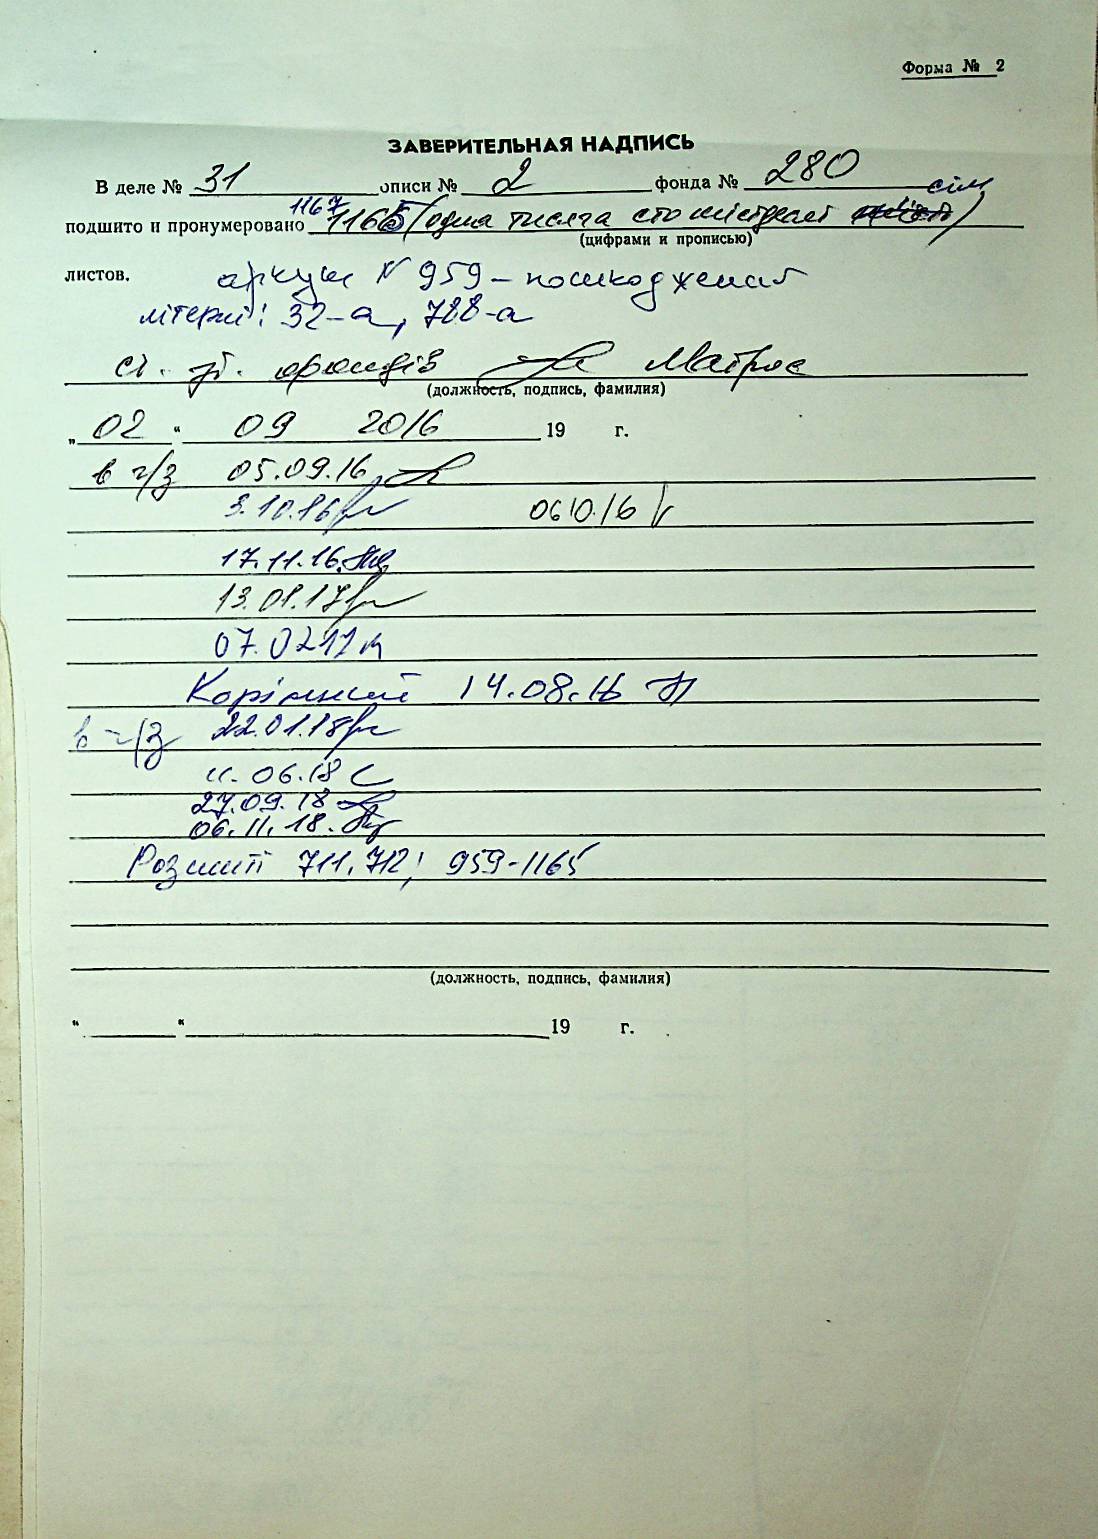 Форма № 2
ЗАВЕРИТЕЛЬНАЯ НАДПИСЬ
В деле № 31 описи № 2 фонда № 280
1167 сім
подшито и пронумеровано 1165 (одна тисяча сто шістдесят)
(цифрами и прописью)
листов. аркуш № 959 – пошкоджений
літерні: 32-а, 788-а
ст. зб. фондів Матрос
(должность, подпись, фамилия)
„02“ 09 2016 19 г.
в ч/з 05.09.16
3.10.16 06.10.16
17.11.16
13.01.17
07.02.17
14.08.
в ч/з 22.01.18
11.06.18
27.09.18
06.11.18.
Розшиті 711, 712; 959-1165
(должность, подпись, фамилия)
“ “ 19 г.